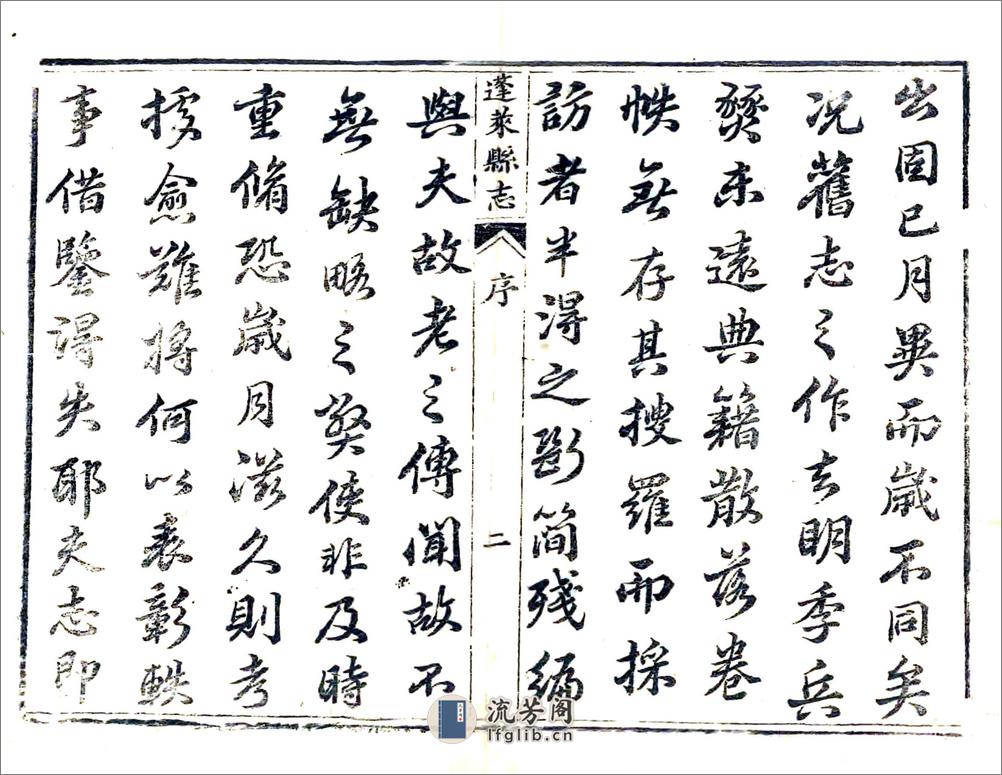 出固已月異而歲不同矣
况舊志之作去明季兵
燹未遠典籍散落卷
帙無存其搜羅而採
訪者半得之斷簡殘編
蓬萊縣志 序 二
與夫故老之傳聞故不
無缺略之獘使非及時
重脩恐歲月滋久則考
據愈難將何以表彰軼
事借鑒得失耶夫志即
流芳阁
lfglib.cn